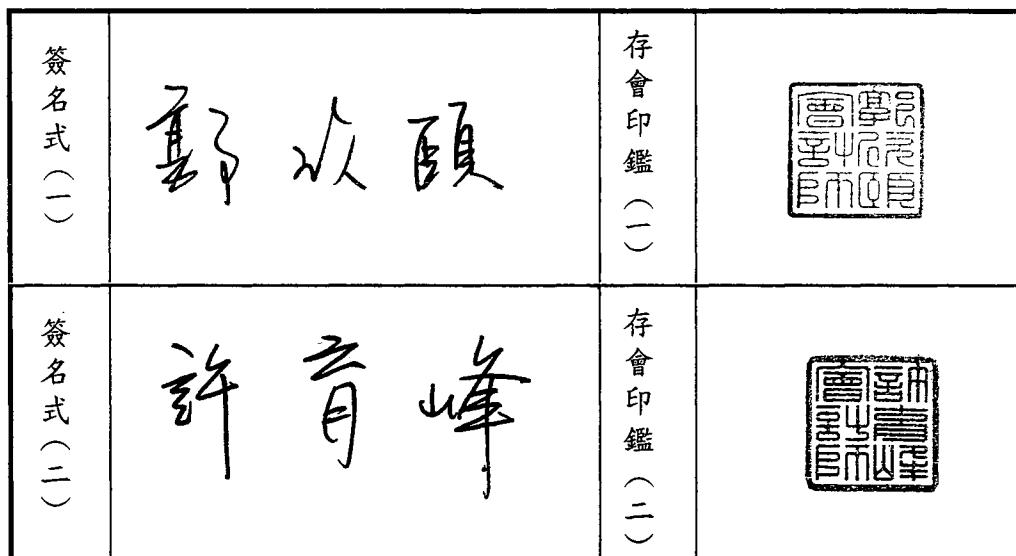 簽名式(一)
郭欣頤
存會印鑑(一)
郭欣頤
會計師
簽名式(二)
許育峰
存會印鑑(二)
許育峰
會計師